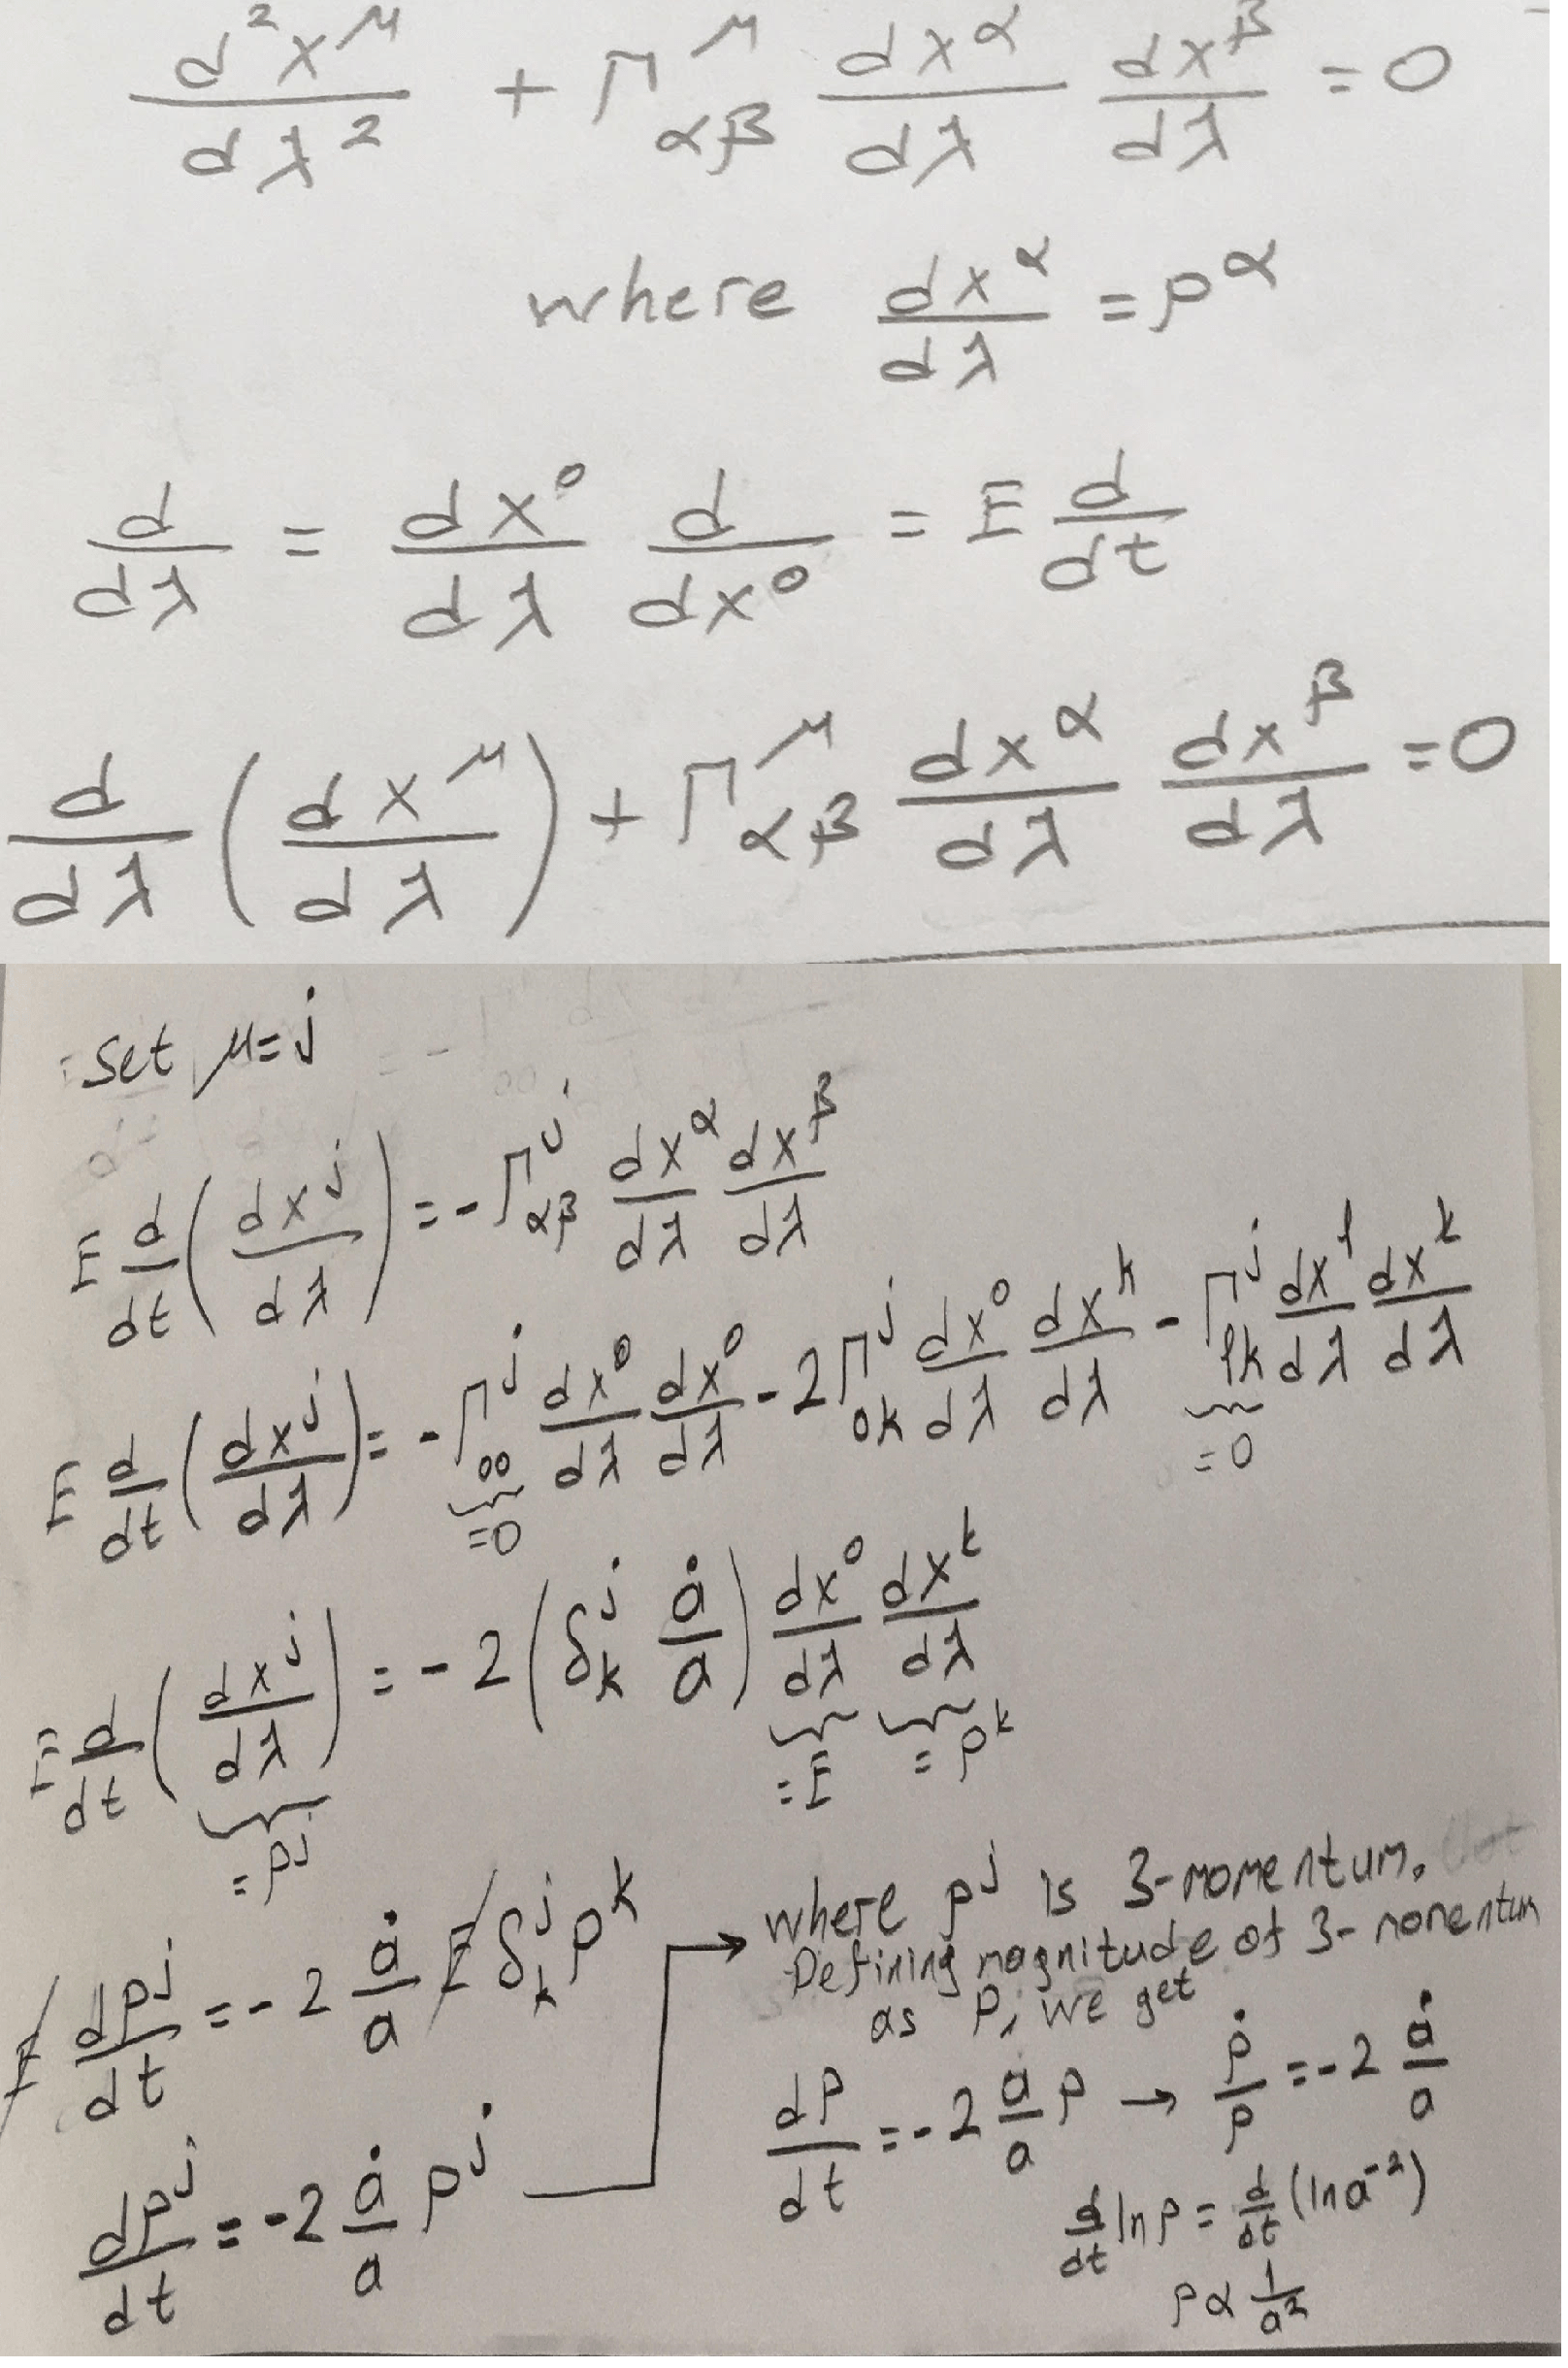 d²x^μ/dλ² + Γ^μ_αβ dx^α/dλ dx^β/dλ = 0
where dx^α/dλ = p^α
d/dλ = dx⁰/dλ d/dx⁰ = E d/dt
d/dλ (dx^μ/dλ) + Γ^μ_αβ dx^α/dλ dx^β/dλ = 0
set μ = j
E d/dt (dx^j/dλ) = -Γ^j_αβ dx^α/dλ dx^β/dλ
E d/dt (dx^j/dλ) = -Γ^j_00 (=0) dx⁰/dλ dx⁰/dλ - 2Γ^j_0k dx⁰/dλ dx^k/dλ - Γ^j_lk (=0) dx^l/dλ dx^k/dλ
E d/dt (dx^j/dλ) (=p^j) = -2 (δ^j_k ȧ/a) dx⁰/dλ (=E) dx^k/dλ (=p^k)
E dp^j/dt = -2 ȧ/a E δ^j_k p^k
dp^j/dt = -2 ȧ/a p^j
→ where p^j is 3-momentum.
Defining magnitude of 3-momentum
as P, we get
dp/dt = -2 ȧ/a p → ṗ/p = -2 ȧ/a
d/dt ln p = d/dt (ln a⁻²)
p ∝ 1/a²